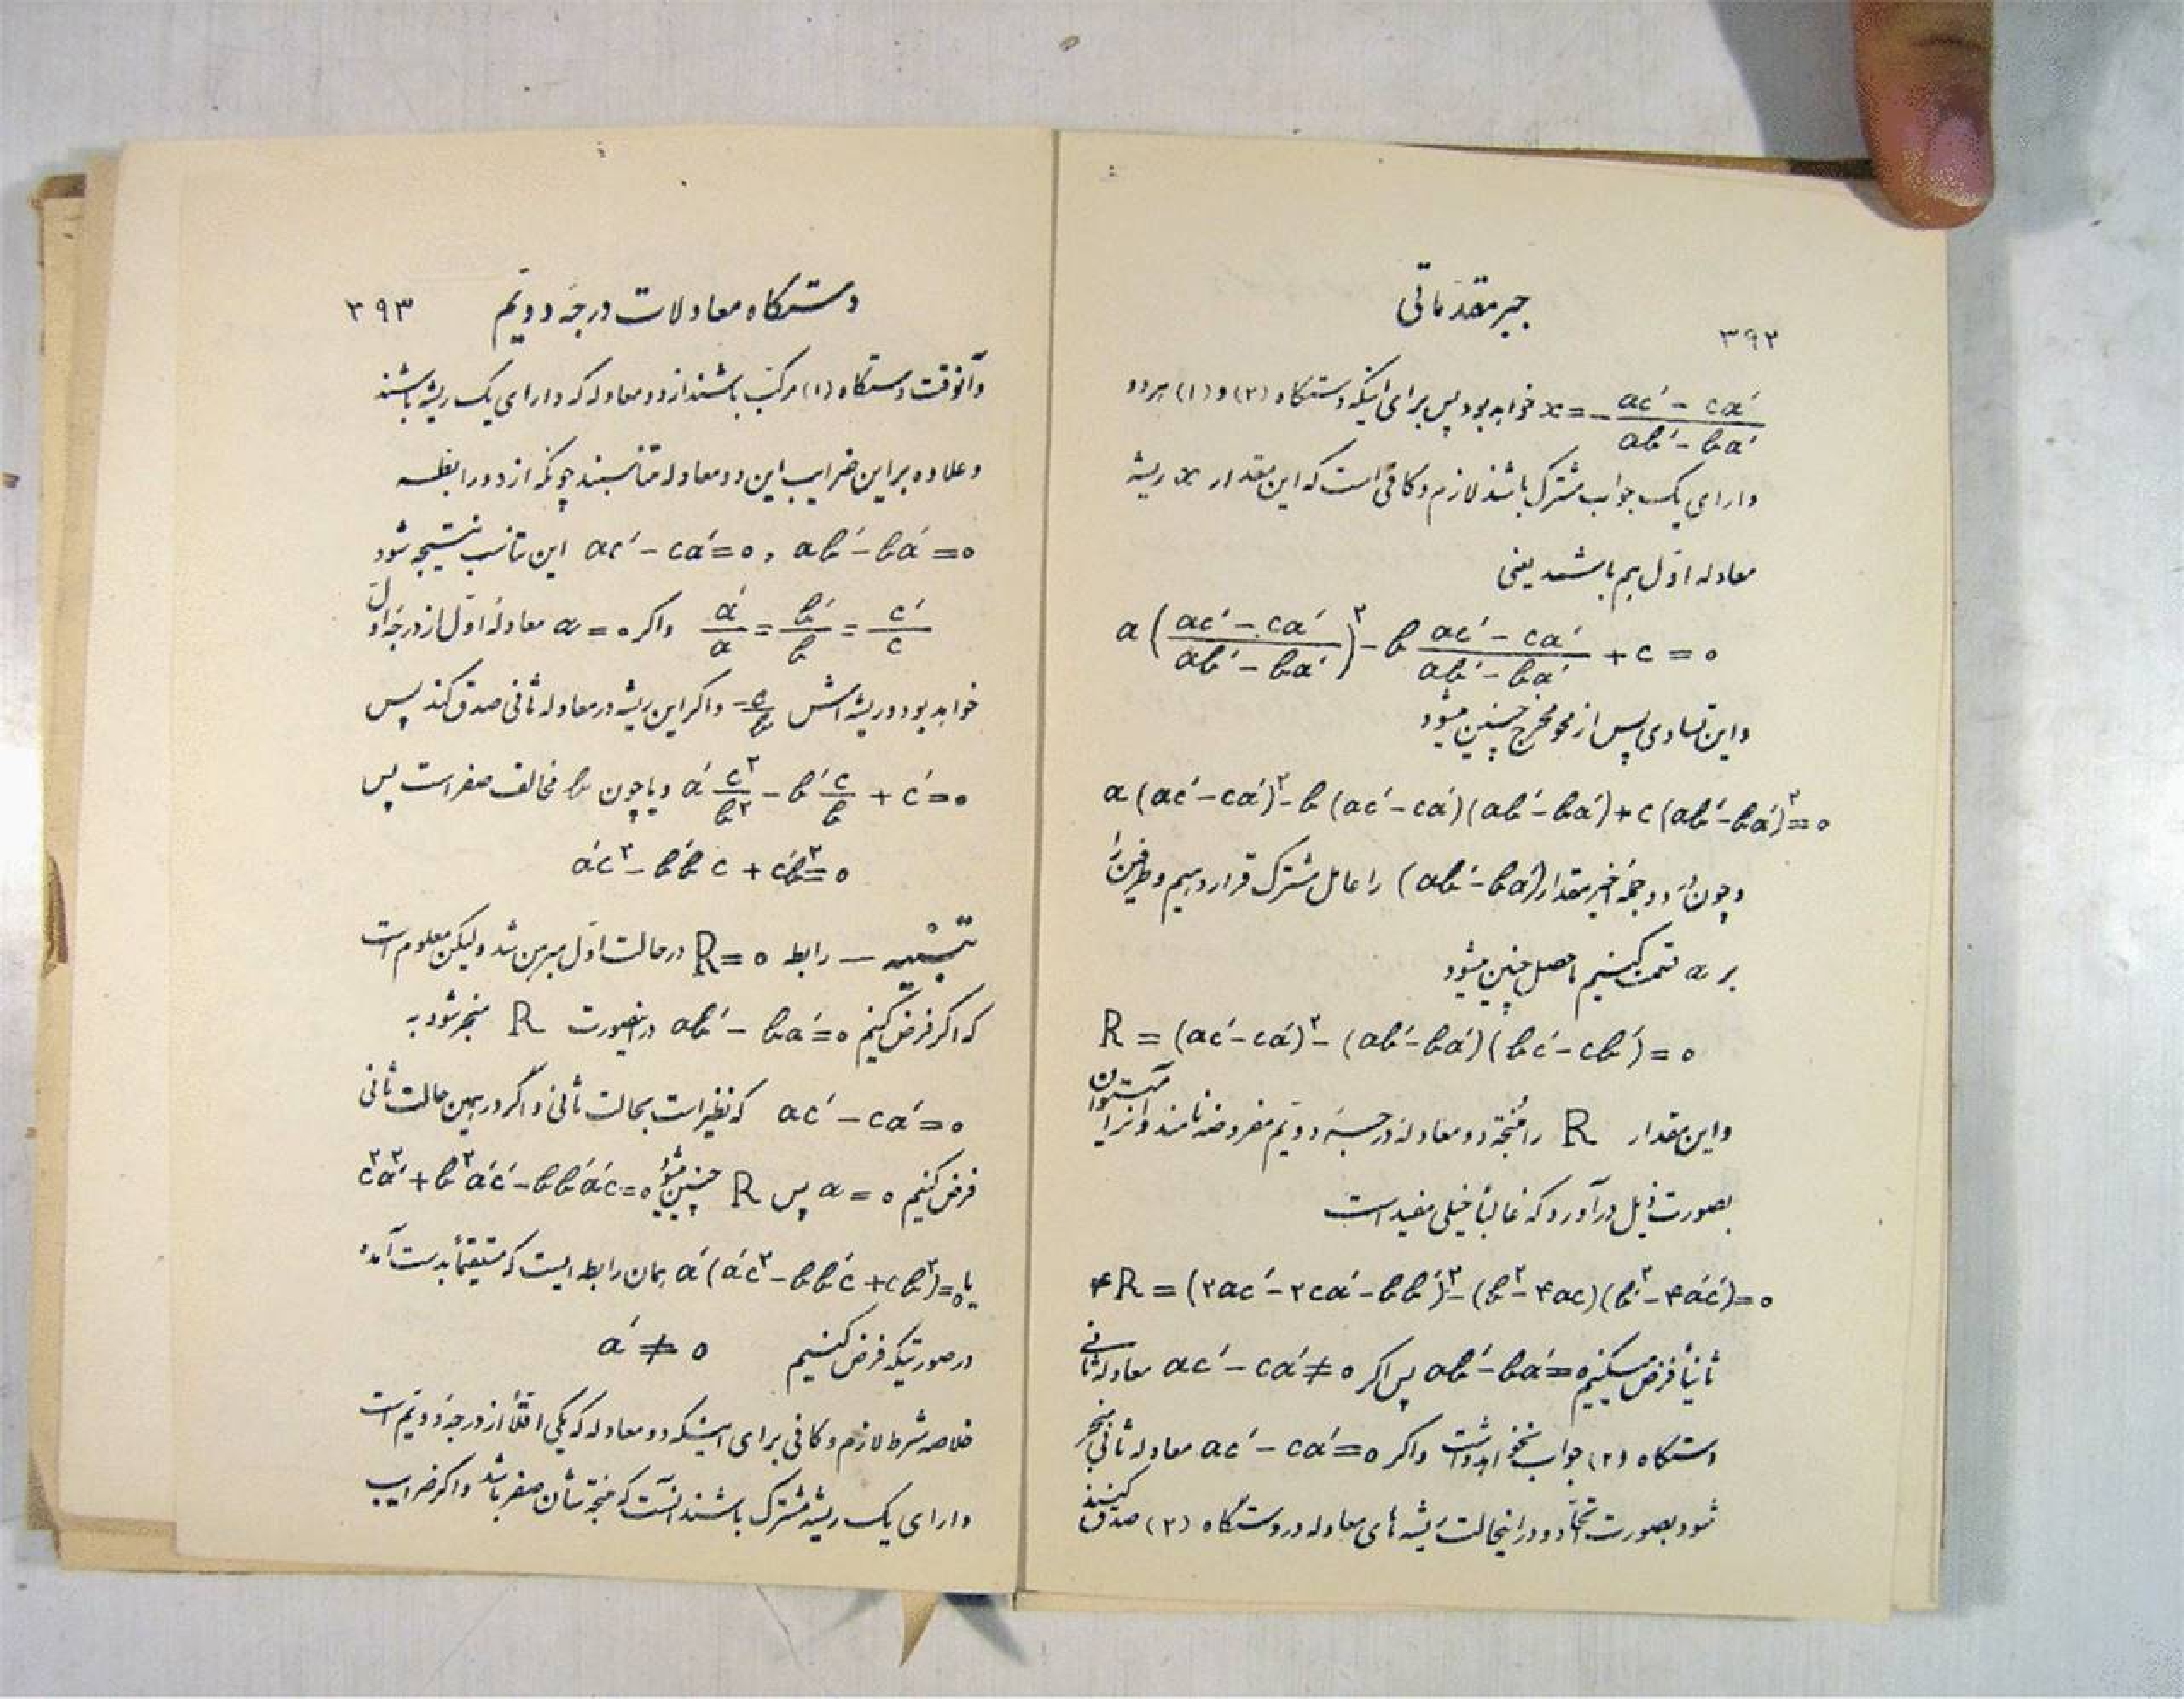 جبر مقدماتی
۳۹۲
x = - (ac′ - ca′)/(ab′ - ba′) خواهد بود پس برای اینکه دستگاه (۲) و (۱) هر دو
دارای یک جواب مشترک باشند لازم و کافی است که این مقدار x ریشه
معادله اوّل هم باشد یعنی
a((ac′ - ca′)/(ab′ - ba′))² - b (ac′ - ca′)/(ab′ - ba′) + c = ۰
و این تساوی پس از محو مخرج چنین میشود
a(ac′-ca′)² - b(ac′-ca′)(ab′-ba′) + c(ab′-ba′)² = ۰
و چون در دو جملهٔ اخیر مقدار (ab′-ba′) را عامل مشترک قرار دهیم و طرفین را
بر a قسمت کنیم حاصل چنین میشود
R = (ac′-ca′)² - (ab′-ba′)(bc′-cb′) = ۰
و این مقدار R را مُنتجهٔ دو معادله درجهٔ دوّیم مفروضه نامند و آنرا میتوان
بصورت ذیل درآورد که غالباً خیلی مفید است
۴R = (۲ac′ - ۲ca′ - bb′)² - (b² - ۴ac)(b′² - ۴a′c′) = ۰
ثانیاً فرض میکنیم ab′ - ba′ = ۰ پس اگر ac′ - ca′ ≠ ۰ معادله ثانی
دستگاه (۲) جواب نخواهد داشت و اگر ac′ - ca′ = ۰ معادله ثانی منجر
شود بصورت اتحاد و در اینحالت ریشه های معادله در دستگاه (۲) صدق کنند
دستگاه معادلات درجهٔ دوّیم ۳۹۳
و آنوقت دستگاه (۱) مرکّب باشند از دو معادله که دارای یک ریشه باشند
و علاوه بر این ضرایب این دو معادله متناسبند چونکه از دو رابطه
ab′ - ba′ = ۰ و ac′ - ca′ = ۰ این تناسب نتیجه شود
a′/a = b′/b = c′/c و اگر a = ۰ معادلهٔ اوّل از درجهٔ اوّل
خواهد بود و ریشه اش -c/b و اگر این ریشه در معادله ثانی صدق کند پس
a′ c²/b² - b′ c/b + c′ = ۰ و یا چون b مخالف صفر است پس
a′c² - bb′c + c′b² = ۰
تنبیه — رابطه R = ۰ در حالت اوّل مبرهن شد ولیکن معلوم است
که اگر فرض کنیم ab′ - ba′ = ۰ در اینصورت R منجر شود به
ac′ - ca′ = ۰ که نظیر است بحالت ثانی و اگر در همین حالت ثانی
فرض کنیم a = ۰ پس R چنین میشود c²a′² + b²a′c′ - bb′a′c = ۰
یا a′(a′c² - bb′c + c′b²) = ۰ همان رابطه ایست که مستقیماً بدست آمده
در صورتیکه فرض کنیم a′ ≠ ۰
خلاصه شرط لازم و کافی برای اینکه دو معادله که یکی اقلاً از درجهٔ دوّیم است
دارای یک ریشه مشترک باشند آنست که منتجهٔ شان صفر باشد و اگر ضرایب